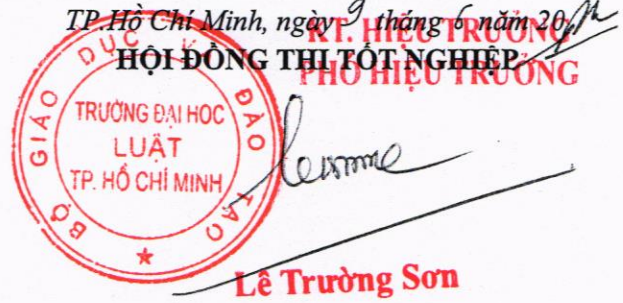 TP.Hồ Chí Minh, ngày 9 tháng 6 năm 20
KT. HIỆU TRƯỞNG
HỘI ĐỒNG THI TỐT NGHIỆP
PHÓ HIỆU TRƯỞNG
BỘ GIÁO DỤC VÀ ĐÀO TẠO
TRƯỜNG ĐẠI HỌC
LUẬT
TP. HỒ CHÍ MINH
Lê Trường Sơn